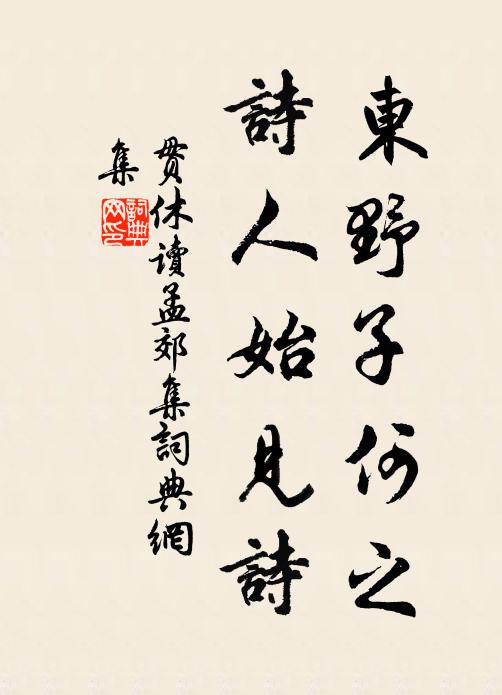 東野子何之
詩人始見詩
貫休讀孟郊集詞典網
集
詞典網印